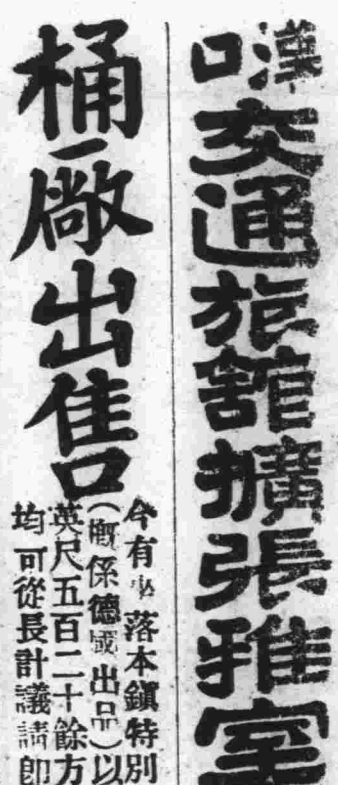 漢口交通旅館擴張雅室
桶廠出售
今有坐落本鎭特別
(概係德國出品)以
英尺五百二十餘方
均可從長計議請卽